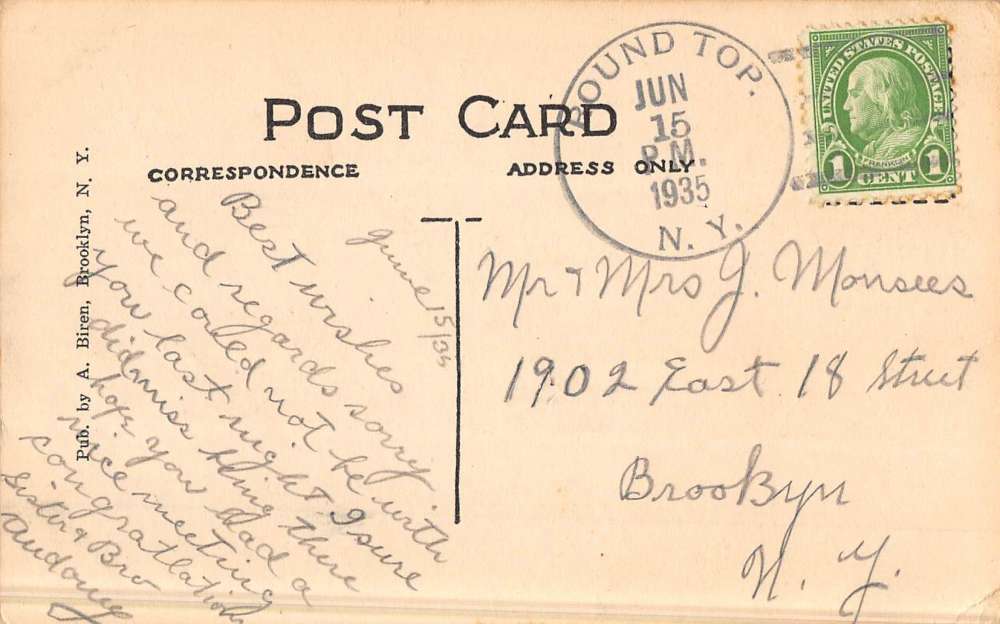 POST CARD
CORRESPONDENCE
ADDRESS ONLY
Pub. by A. Biren, Brooklyn, N. Y.
ROUND TOP.
JUN
15
P.M.
1935
N. Y.
UNITED STATES POSTAGE
FRANKLIN
1 CENT 1
June 15/35
Best wishes
and regards sorry
we could not be with
you last night I sure
did miss being there
hope you had a
nice meeting
congratlations
Sister & Bro
Mr & Mrs J. Monsees
1902 East 18 Street
Brooklyn
N. Y.